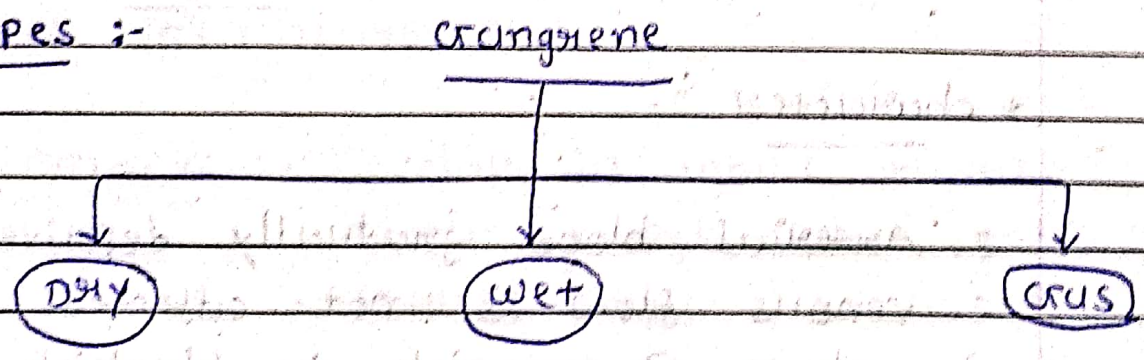 pes :- Gangrene
Dry wet Gas